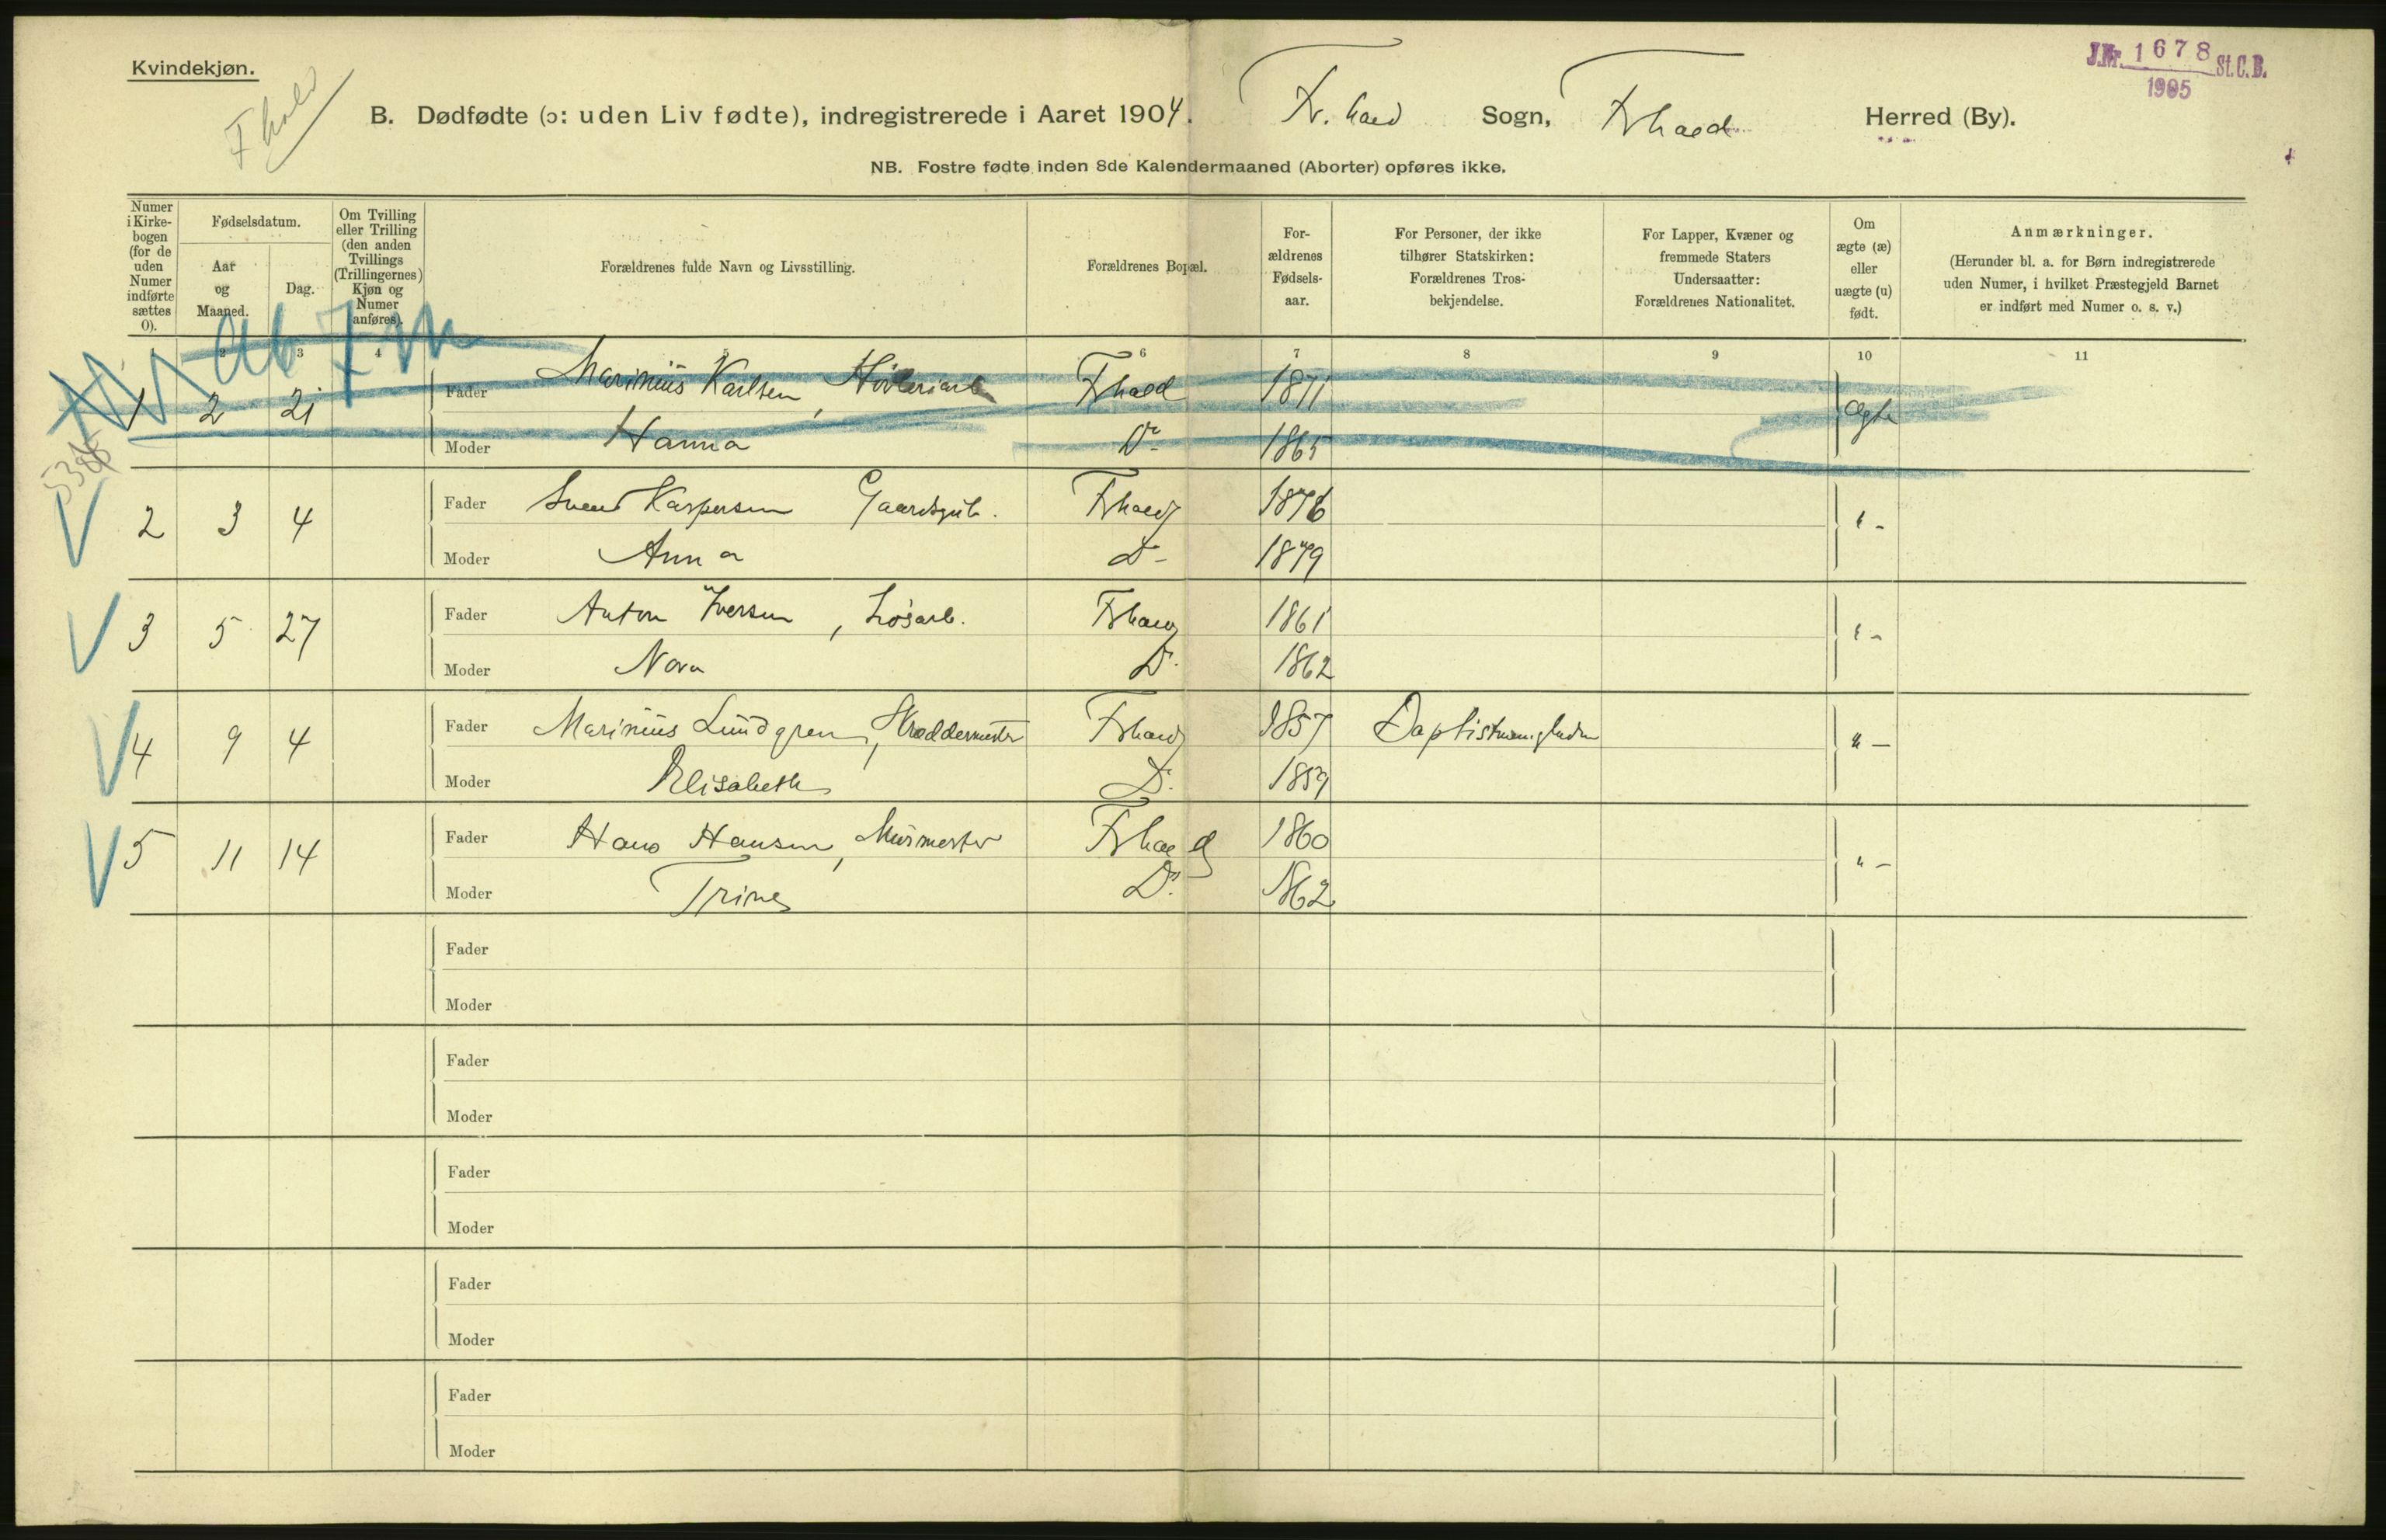 Kvindekjøn.
Fhald
J.Nr. 1678 St.C.B.
1905
B. Dødfødte (ɔ: uden Liv fødte), indregistrerede i Aaret 1904. Fr.hald Sogn, Frhald Herred (By).
NB. Fostre fødte inden 8de Kalendermaaned (Aborter) opføres ikke.
Numer i Kirke-bogen (for de uden Numer indførte sættes 0).
Fødselsdatum.
Aar og Maaned.
Dag.
Om Tvilling eller Trilling (den anden Tvillings (Trillingernes) Kjøn og Numer anføres).
Forældrenes fulde Navn og Livsstilling.
Forældrenes Bopæl.
For-ældrenes Fødsels-aar.
For Personer, der ikke tilhører Statskirken: Forældrenes Tros-bekjendelse.
For Lapper, Kvæner og fremmede Staters Undersaatter: Forældrenes Nationalitet.
Om ægte (æ) eller uægte (u) født.
Anmærkninger.
(Herunder bl. a. for Børn indregistrerede uden Numer, i hvilket Præstegjeld Barnet er indført med Numer o. s. v.)
ab 7 m
2 3 4 5 6 7 8 9 10 11
1 2 21 Fader Marinius Karlsen, Høvleriarb Frhald 1871 Ægte
Moder Hanna Do 1865
2 3 4 Fader Svend Kaspersen Gaardsgut. Frhald 1876 " -
Moder Anna Do 1879
3 5 27 Fader Anton Iversen, Løsarb. Frhald 1861 " -
Moder Nora Do 1862
4 9 4 Fader Marinius Lundgren, Skræddermester Frhald 1857 " -
Moder Elisabeth Do 1859
5 11 14 Fader Hans Hansen, Murmester Frhald 1860 " -
Moder Trine Do 1862
Fader
Moder
Fader
Moder
Fader
Moder
Fader
Moder
Fader
Moder